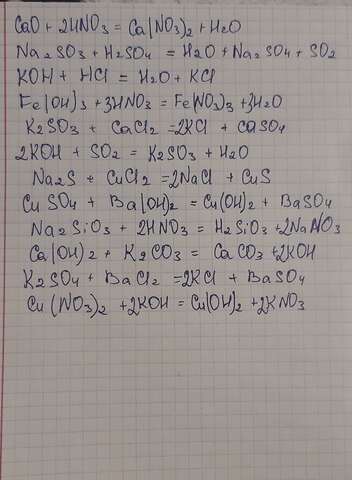 CaO + 2HNO3 = Ca(NO3)2 + H2O
Na2SO3 + H2SO4 = H2O + Na2SO4 + SO2
KOH + HCl = H2O + KCl
Fe(OH)3 + 3HNO3 = Fe(NO3)3 + 3H2O
K2SO3 + CaCl2 = 2KCl + CaSO4
2KOH + SO2 = K2SO3 + H2O
Na2S + CuCl2 = 2NaCl + CuS
CuSO4 + Ba(OH)2 = Cu(OH)2 + BaSO4
Na2SiO3 + 2HNO3 = H2SiO3 + 2NaNO3
Ca(OH)2 + K2CO3 = CaCO3 + 2KOH
K2SO4 + BaCl2 = 2KCl + BaSO4
Cu(NO3)2 + 2KOH = Cu(OH)2 + 2KNO3